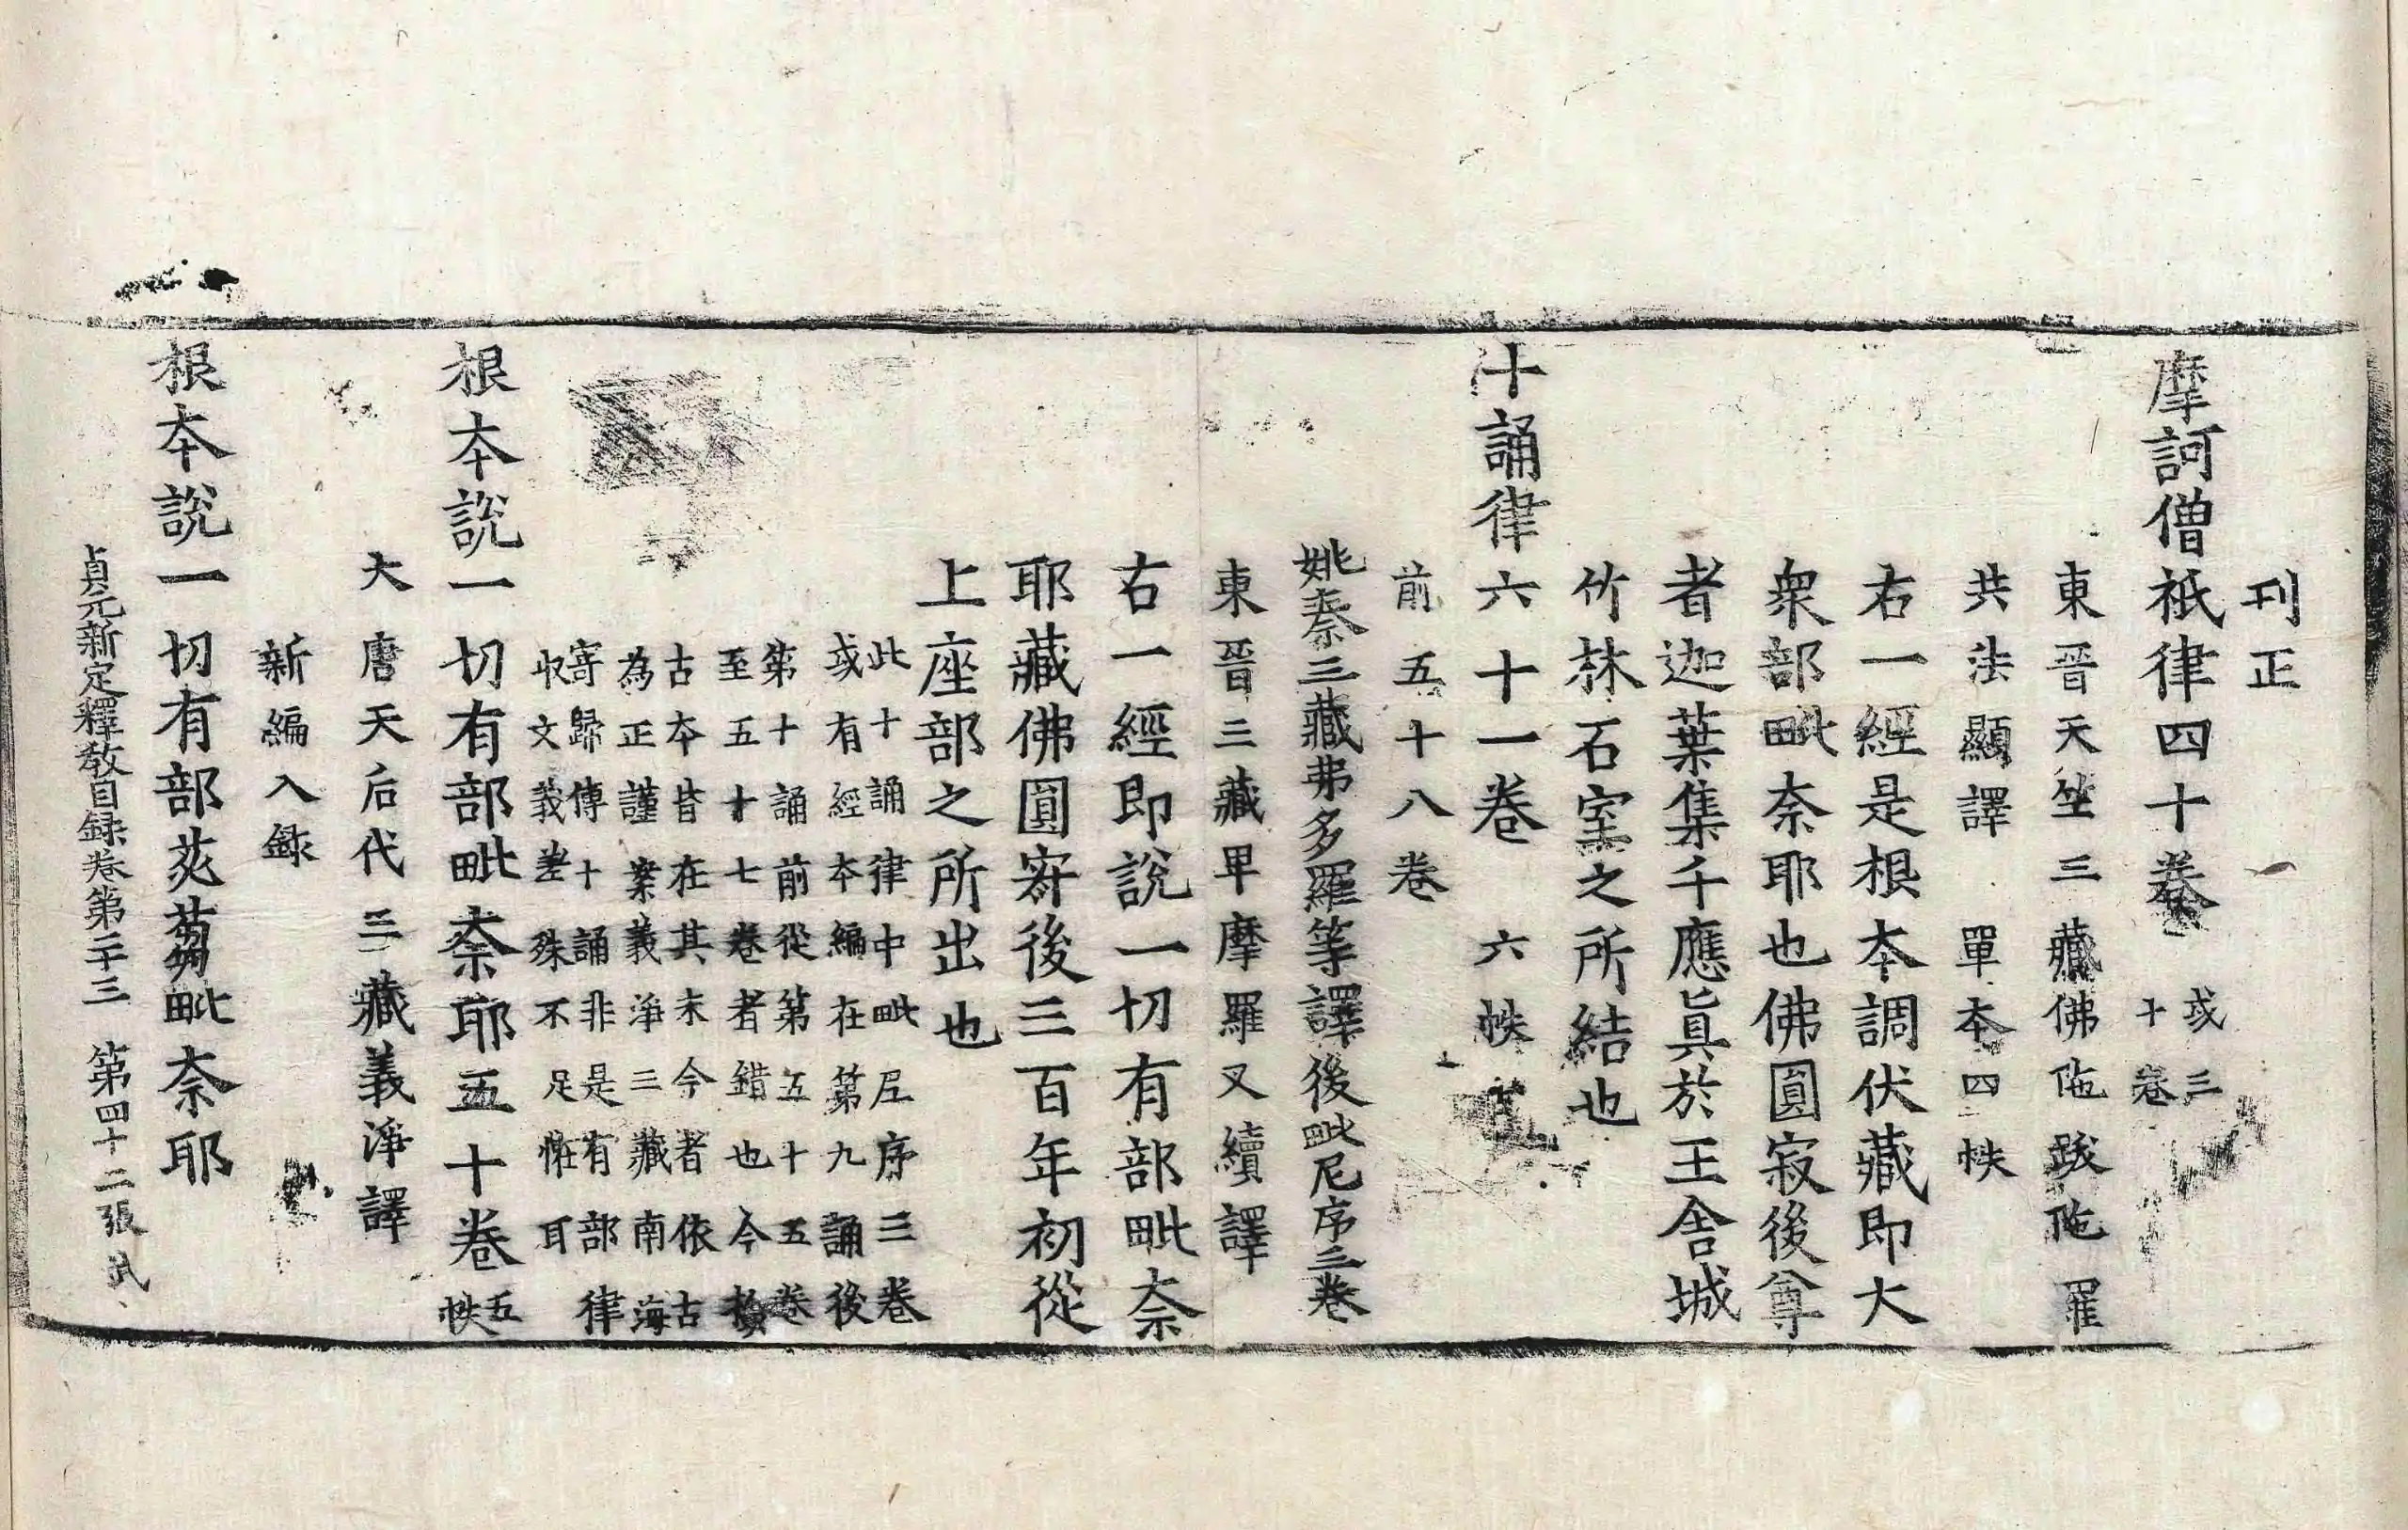 刊正
摩訶僧祇律四十卷
或三
十卷
東晉天竺三藏佛陁跋陁羅
共法顯譯 單本四帙
右一經是根本調伏藏即大
衆部毗奈耶也佛圓寂後尊
者迦葉集千應眞於王舍城
竹林石室之所結也
十誦律六十一卷 六帙
前五十八卷
姚秦三藏弗多羅等譯後毗尼序三卷
東晉三藏卑摩羅叉續譯
右一經即說一切有部毗奈
耶藏佛圓寂後三百年初從
上座部之所出也
此十誦律中毗尼序三卷
或有經本編在第九誦後
第十誦前從第五十五卷
至五十七卷者錯也今撿
古本皆在其末今者依古
為正謹案義淨三藏南海
寄歸傳十誦非是有部律
収文義差殊不足恠耳
根本說一切有部毗奈耶五十卷
五
帙
大唐天后代三藏義淨譯
新編入錄
根本說一切有部苾芻毗奈耶
貞元新定釋教目録卷第二十三 第四十二張 武